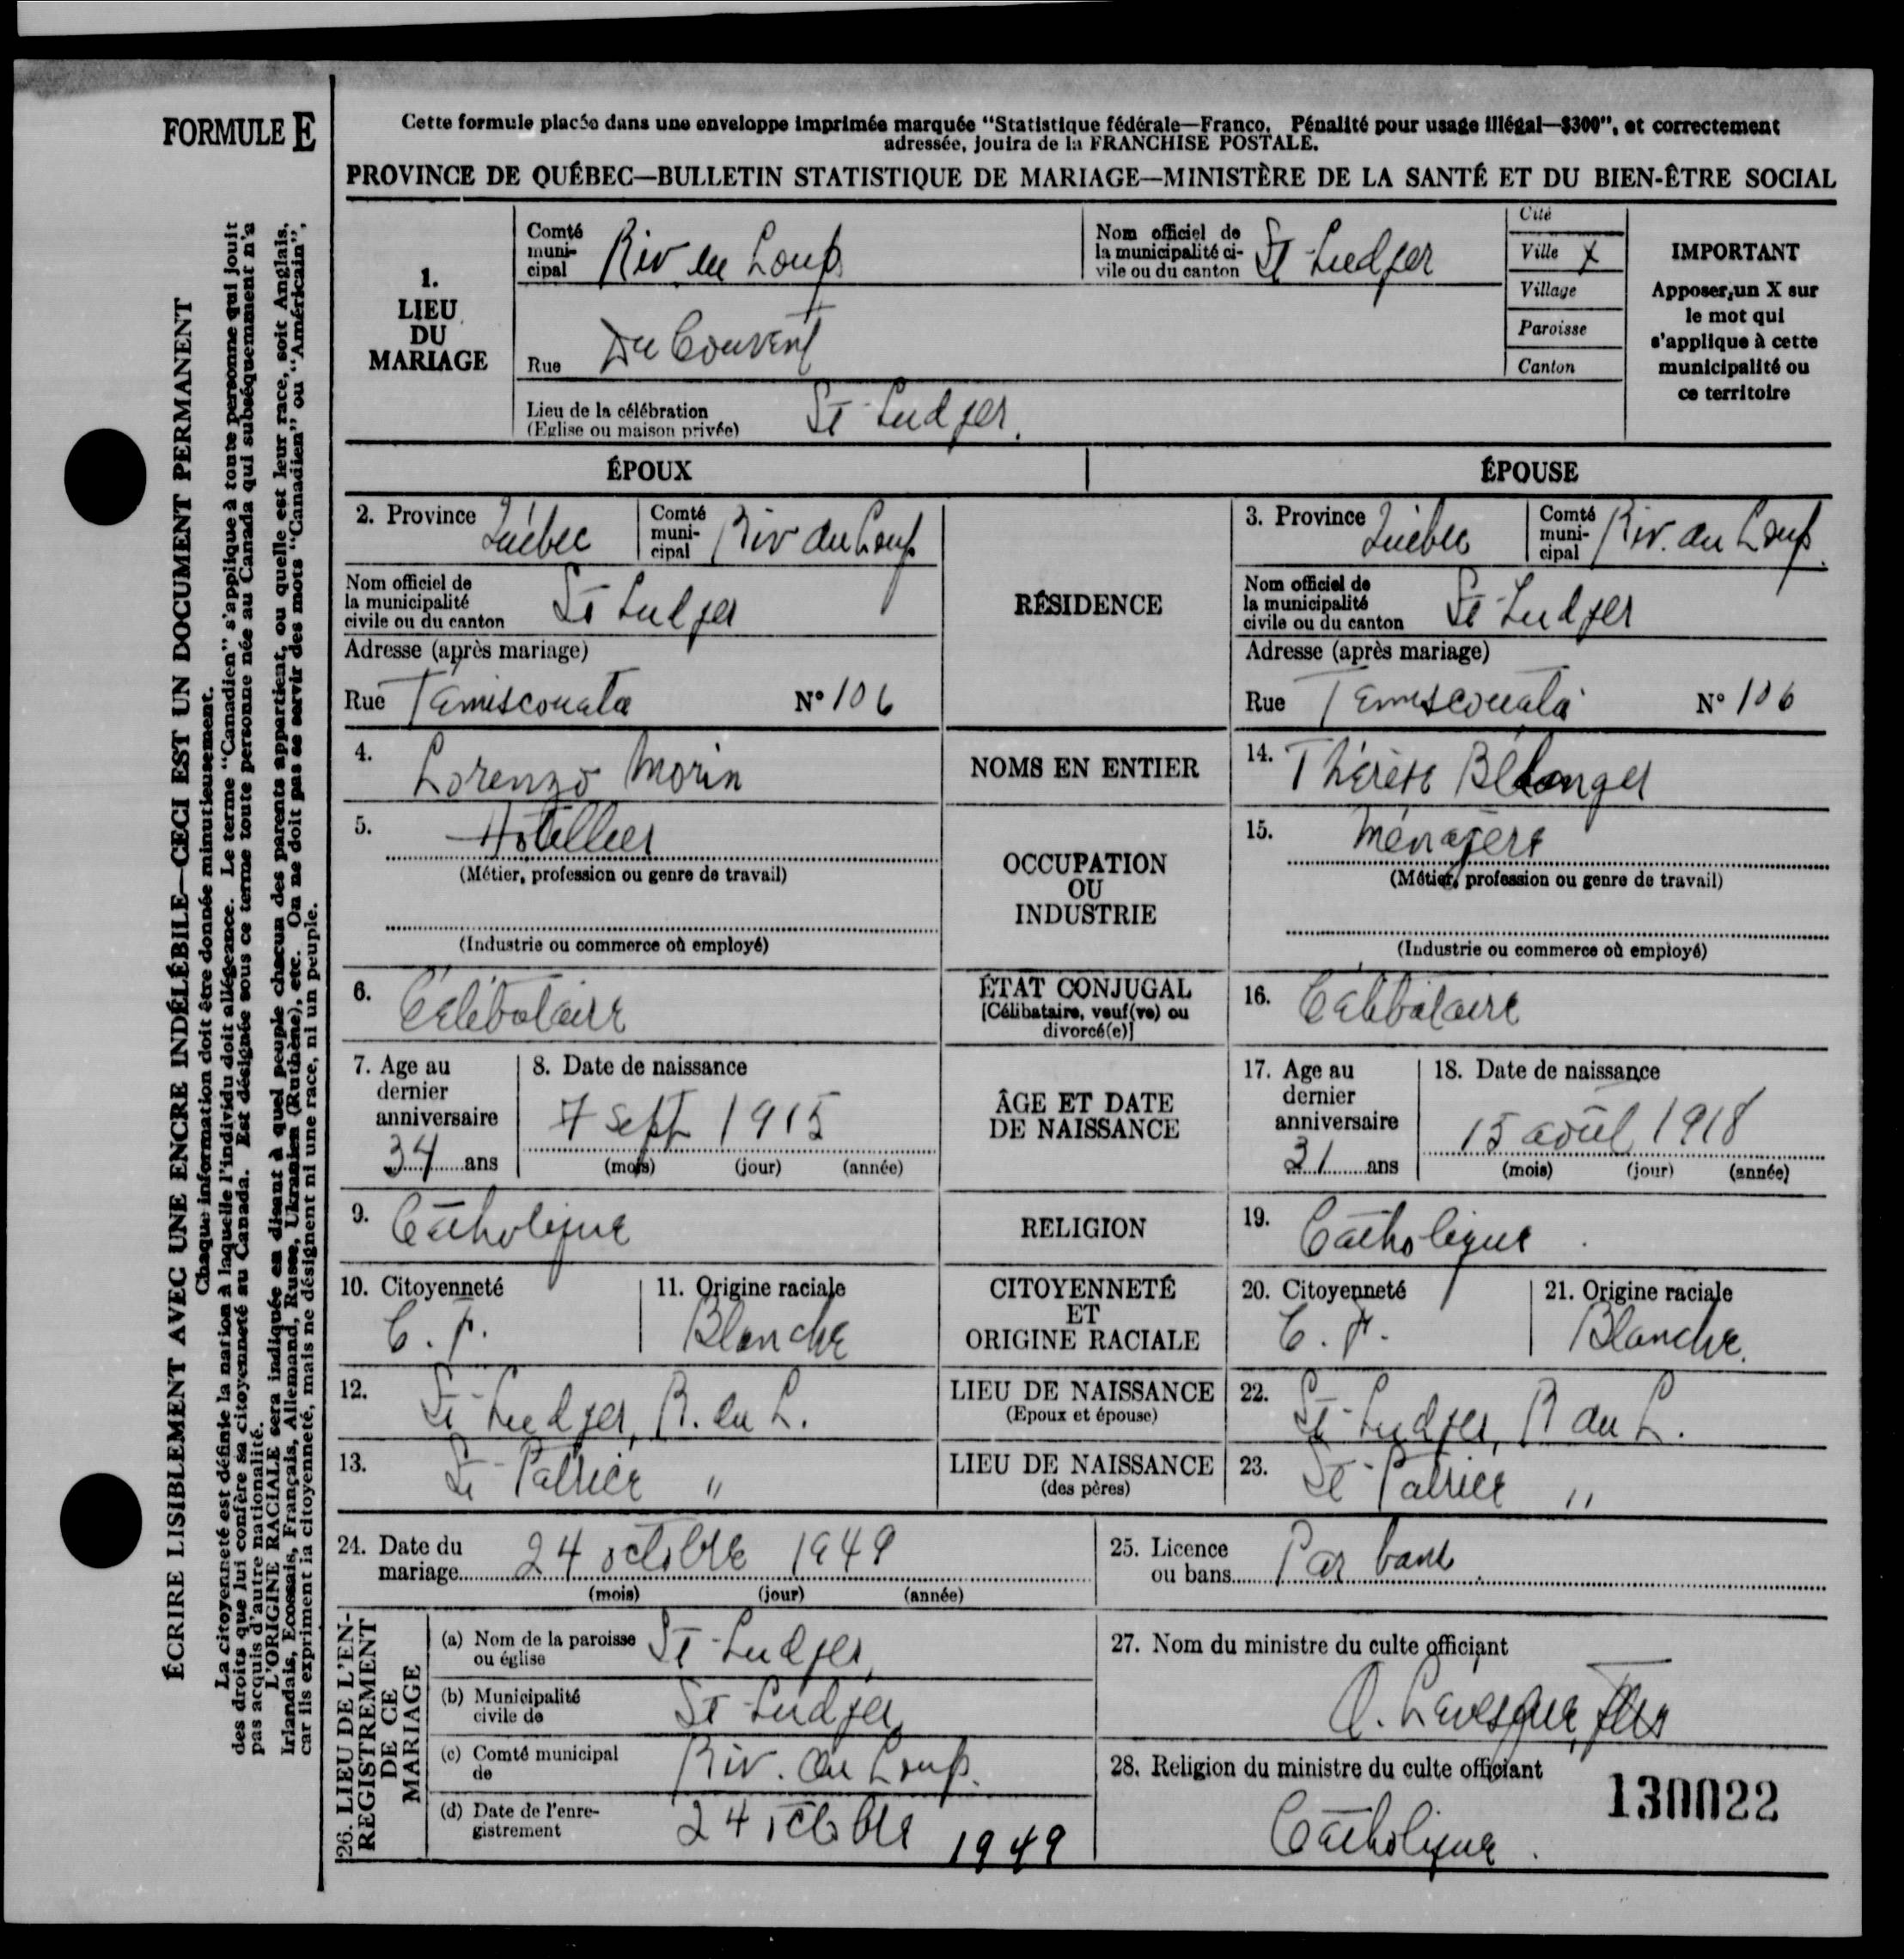 FORMULE E
Cette formule placée dans une enveloppe imprimée marquée "Statistique fédérale—Franco. Pénalité pour usage illégal—$300", et correctement
adressée, jouira de la FRANCHISE POSTALE.
PROVINCE DE QUÉBEC—BULLETIN STATISTIQUE DE MARIAGE—MINISTÈRE DE LA SANTÉ ET DU BIEN-ÊTRE SOCIAL
ÉCRIRE LISIBLEMENT AVEC UNE ENCRE INDÉLÉBILE—CECI EST UN DOCUMENT PERMANENT
Chaque information doit être donnée minutieusement.
La citoyenneté est définie la nation à laquelle l'individu doit allégeance. Le terme "Canadien" s'applique à toute personne qui jouit
des droits que lui confère sa citoyenneté au Canada. Est désignée sous ce terme toute personne née au Canada qui subséquemment n'a
pas acquis d'autre nationalité.
L'ORIGINE RACIALE sera indiquée en disant à quel peuple chacun des parents appartient, ou quelle est leur race, soit Anglais,
Irlandais, Ecossais, Français, Allemand, Russe, Ukranien (Ruthène), etc. On ne doit pas se servir des mots "Canadien" ou "Américain",
car ils expriment la citoyenneté, mais ne désignent ni une race, ni un peuple.
1.
LIEU
DU
MARIAGE
Comté
muni-
cipal Riv du Loup
Nom officiel de
la municipalité ci-
vile ou du canton St-Ludger
Cité
Ville X
Village
Paroisse
Canton
IMPORTANT
Apposer un X sur
le mot qui
s'applique à cette
municipalité ou
ce territoire
Rue Du Couvent
Lieu de la célébration
(Eglise ou maison privée) St-Ludger.
ÉPOUX
ÉPOUSE
2. Province Québec
Comté
muni-
cipal Riv du Loup
RÉSIDENCE
3. Province Québec
Comté
muni-
cipal Riv. du Loup.
Nom officiel de
la municipalité
civile ou du canton St Ludger
Nom officiel de
la municipalité
civile ou du canton St-Ludger
Adresse (après mariage)
Rue Témiscouata N° 106
Adresse (après mariage)
Rue Témiscouata N° 106
4. Lorenzo Morin
NOMS EN ENTIER
14. Thérèse Bélanger
5. Hotellier
(Métier, profession ou genre de travail)
(Industrie ou commerce où employé)
OCCUPATION
OU
INDUSTRIE
15. Ménagère
(Métier, profession ou genre de travail)
(Industrie ou commerce où employé)
6. Célébataire
ÉTAT CONJUGAL
[Célibataire, veuf(ve) ou
divorcé(e)]
16. Célibataire
7. Age au
dernier
anniversaire
34 ans
8. Date de naissance
7 sept 1915
(mois) (jour) (année)
ÂGE ET DATE
DE NAISSANCE
17. Age au
dernier
anniversaire
31 ans
18. Date de naissance
15 août 1918
(mois) (jour) (année)
9. Catholique
RELIGION
19. Catholique.
10. Citoyenneté
C. F.
11. Origine raciale
Blanche
CITOYENNETÉ
ET
ORIGINE RACIALE
20. Citoyenneté
C. F.
21. Origine raciale
Blanche.
12. St-Ludger, R. du L.
LIEU DE NAISSANCE
(Epoux et épouse)
22. St-Ludger, R du L.
13. St-Patrice "
LIEU DE NAISSANCE
(des pères)
23. St-Patrice "
24. Date du
mariage 24 octobre 1949
(mois) (jour) (année)
25. Licence
ou bans Par bans
26. LIEU DE L'EN-
REGISTREMENT
DE CE
MARIAGE
(a) Nom de la paroisse
ou église St-Ludger,
(b) Municipalité
civile de St-Ludger,
(c) Comté municipal
de Riv. du Loup.
(d) Date de l'enre-
gistrement 24 octobre 1949
27. Nom du ministre du culte officiant
Levesque,
28. Religion du ministre du culte officiant
Catholique.
130022